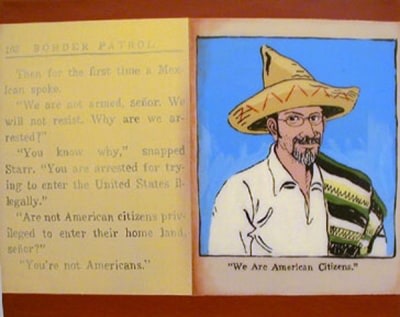 102 BORDER PATROL
Then for the first time a Mex-
ican spoke.
"We are not armed, señor. We
will not resist. Why are we ar-
rested?"
"You know why," snapped
Starr. "You are arrested for try-
ing to enter the United States il-
legally."
"Are not American citizens priv-
ileged to enter their home land,
señor?"
"You're not Americans."
"We Are American Citizens."